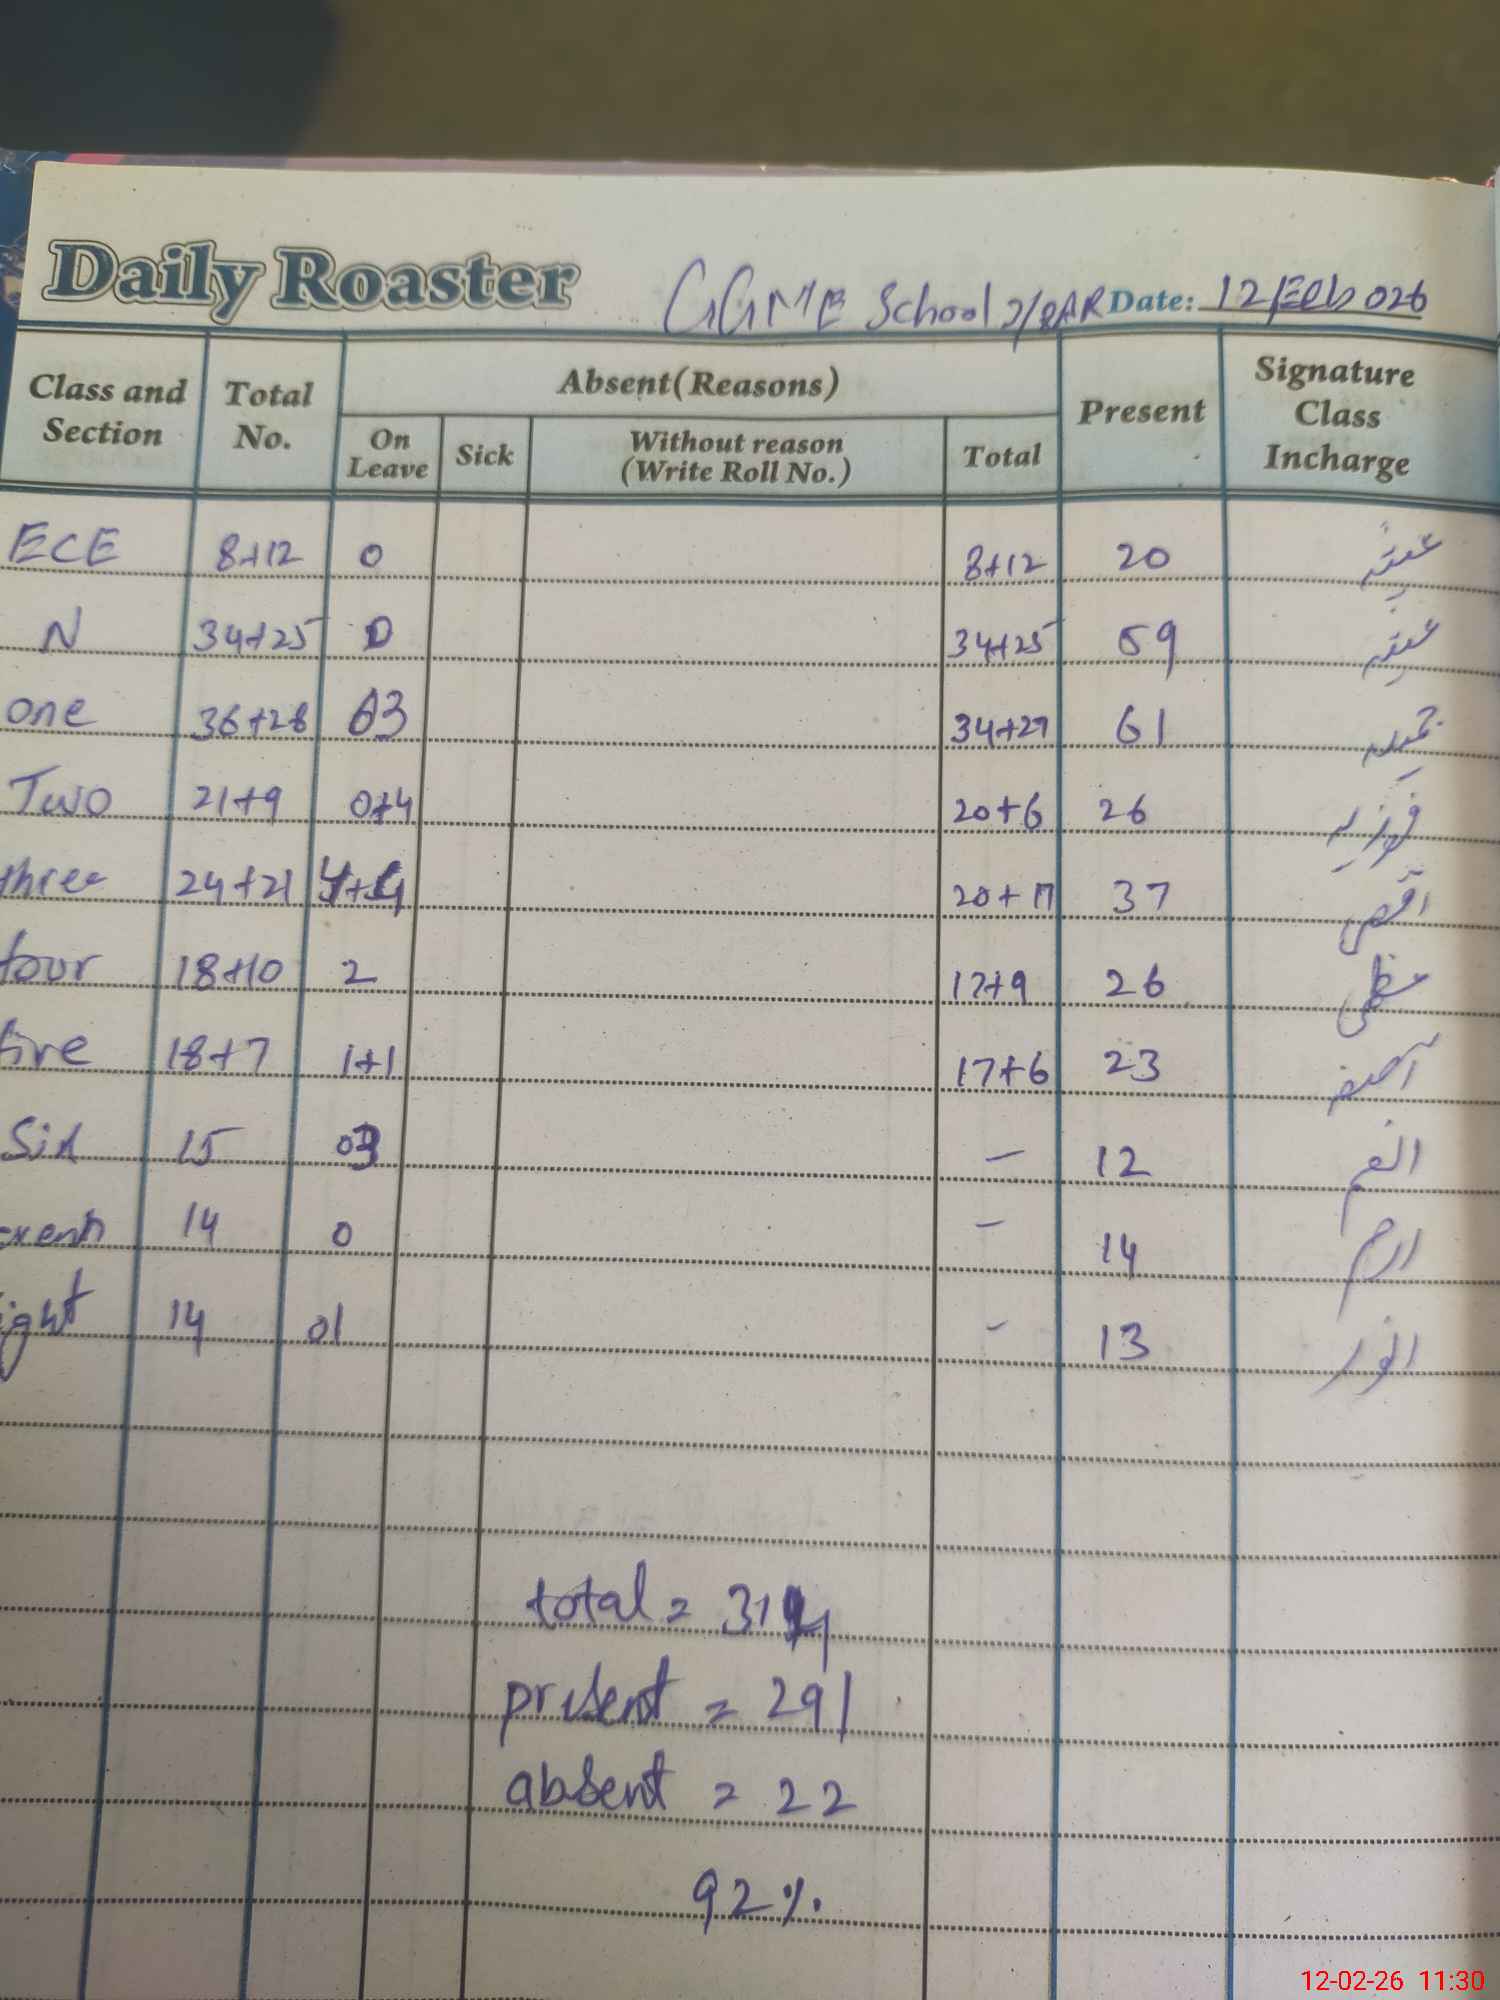 Daily Roaster GGME School 2/RAR Date: 12 Feb 026
Class and Section Total No. Absent(Reasons) Present Signature Class Incharge
On Leave Sick Without reason (Write Roll No.) Total
ECE 8+12 0 8+12 20
N 34+25 0 34+25 59
one 36+28 03 34+27 61
Two 21+9 0+4 20+6 26 فوزیہ
three 24+21 4+4 20+17 37 اقصیٰ
four 18+10 2 17+9 26 عظمیٰ
five 18+7 1+1 17+6 23 آصفہ
Six 15 03 - 12 انعم
seventh 14 0 - 14 ارم
ight 14 01 - 13 انور
total = 314
present = 291
absent = 22
92%
12-02-26 11:30